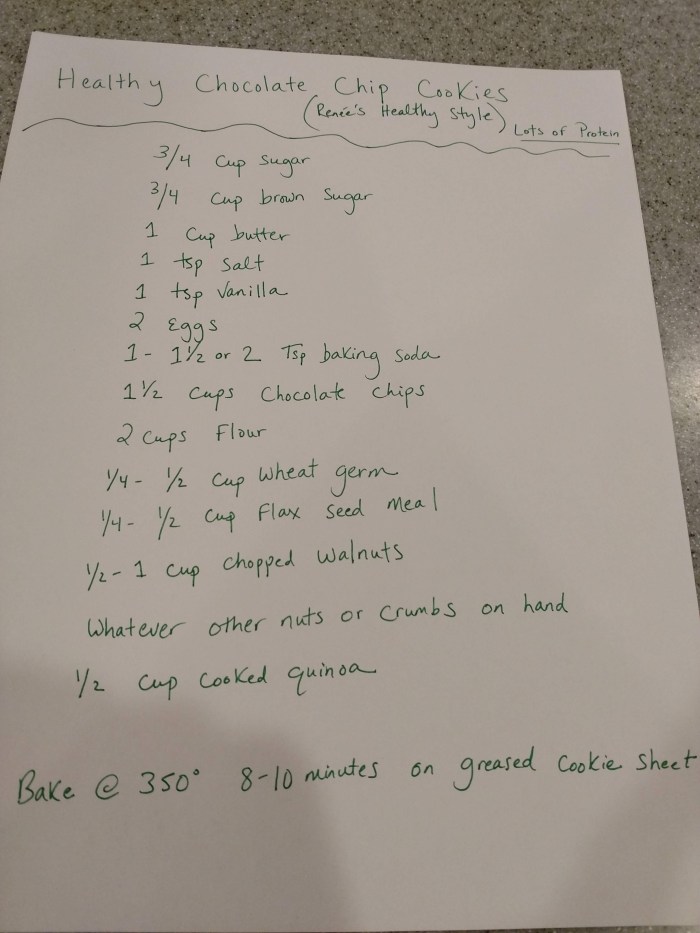 Healthy Chocolate Chip Cookies
(Renée's Healthy Style)
Lots of Protein
3/4 Cup Sugar
3/4 Cup brown Sugar
1 Cup butter
1 tsp Salt
1 tsp Vanilla
2 Eggs
1 - 1 1/2 or 2 Tsp baking Soda
1 1/2 Cups Chocolate Chips
2 Cups Flour
1/4 - 1/2 Cup Wheat germ
1/4 - 1/2 Cup Flax Seed Meal
1/2 - 1 Cup Chopped Walnuts
Whatever other nuts or Crumbs on hand
1/2 Cup Cooked quinoa
Bake @ 350° 8-10 minutes on greased Cookie Sheet